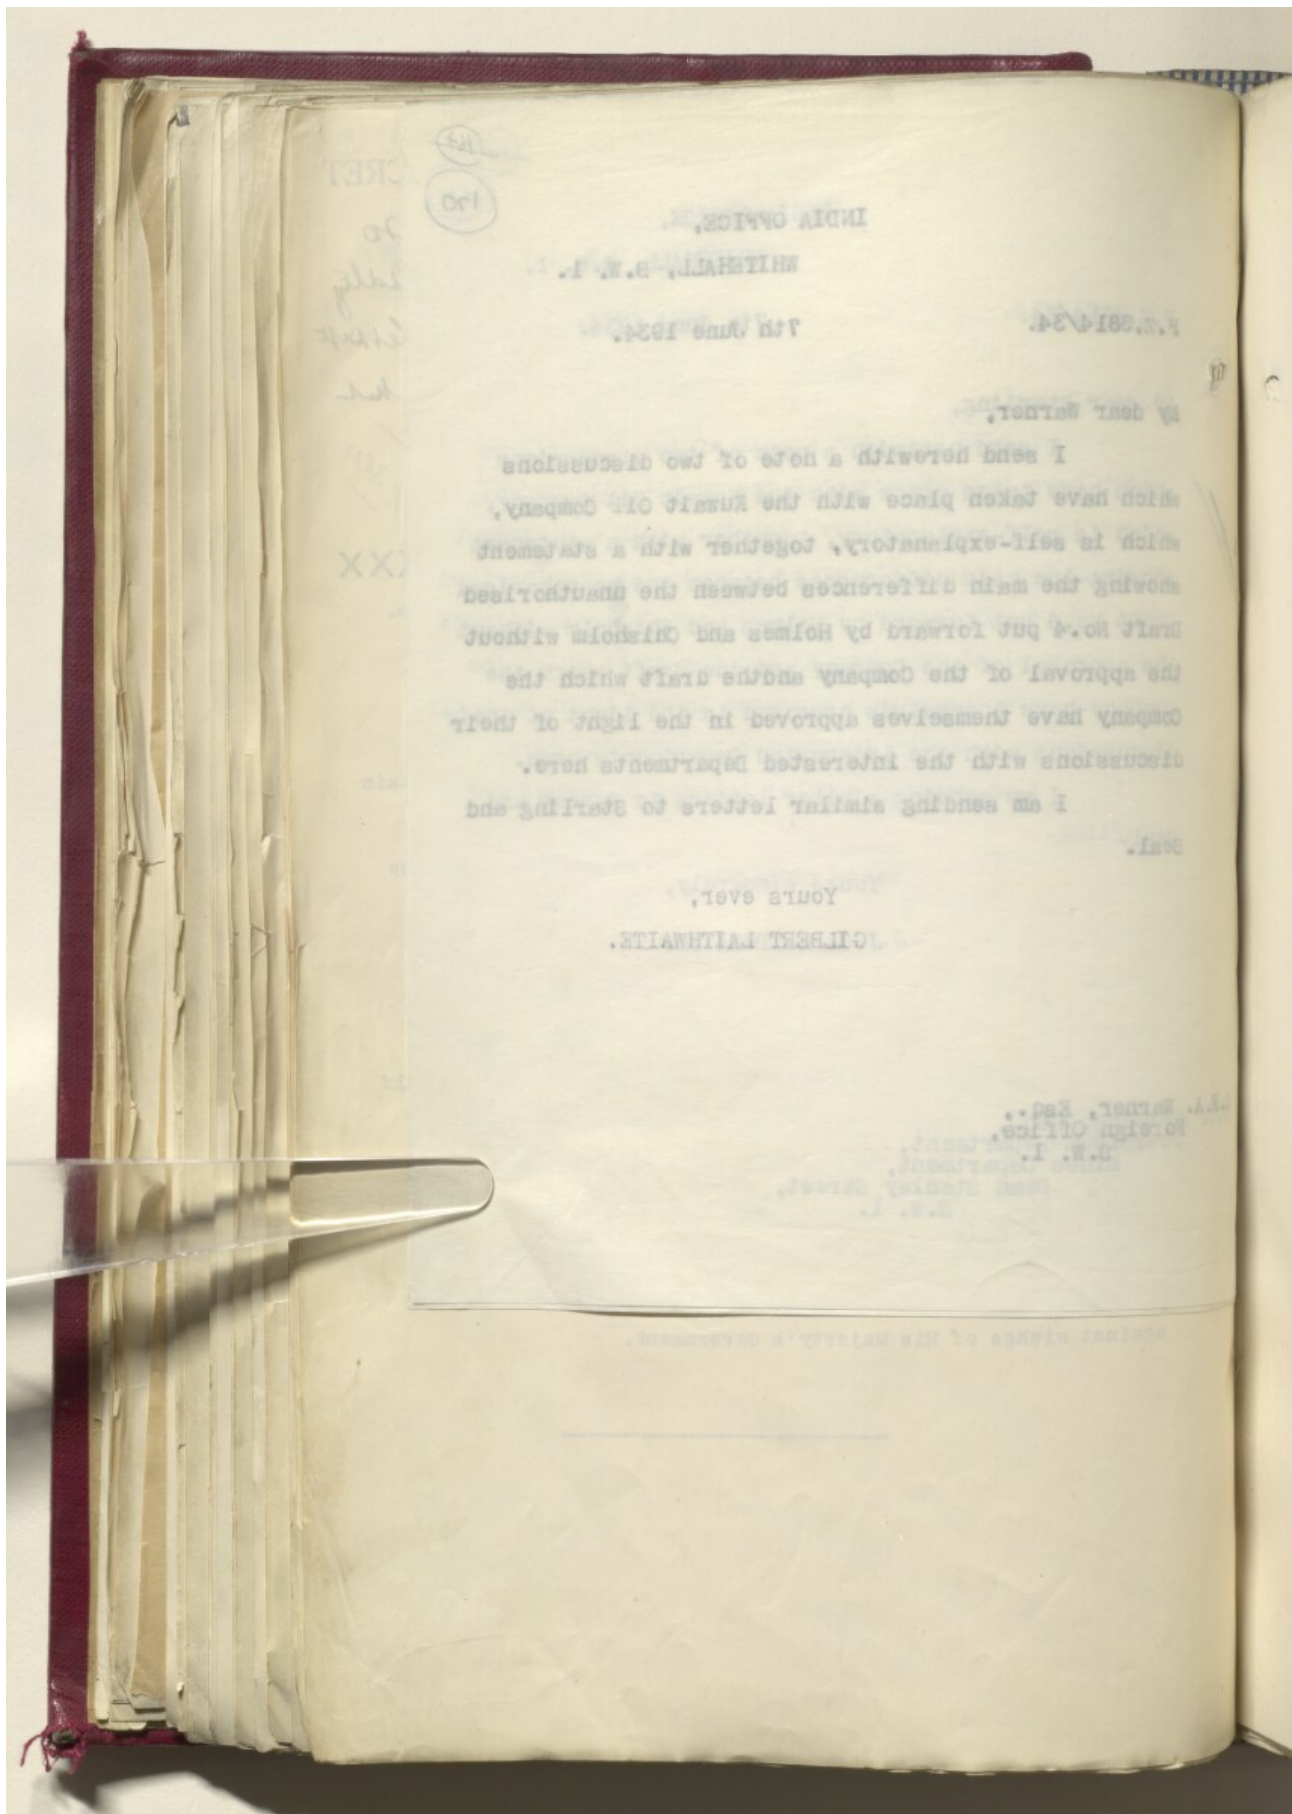 170
INDIA OFFICE,
WHITEHALL, S.W. 1.
P.Z.3814/34.
7th June 1934.
My dear Warner,
I send herewith a note of two discussions
which have taken place with the Kuwait Oil Company,
which is self-explanatory, together with a statement
showing the main differences between the unauthorised
Draft No.4 put forward by Holmes and Chisholm without
the approval of the Company andthe draft which the
Company have themselves approved in the light of their
discussions with the interested Departments here.
I am sending similar letters to Starling and
Seal.
Yours ever,
GILBERT LAITHWAITE.
Warner, Esq.,
Foreign Office,
S.W. 1.
Department,
Dean Stanley Street,
S.W. 1.
against wishes of His Majesty's Government.